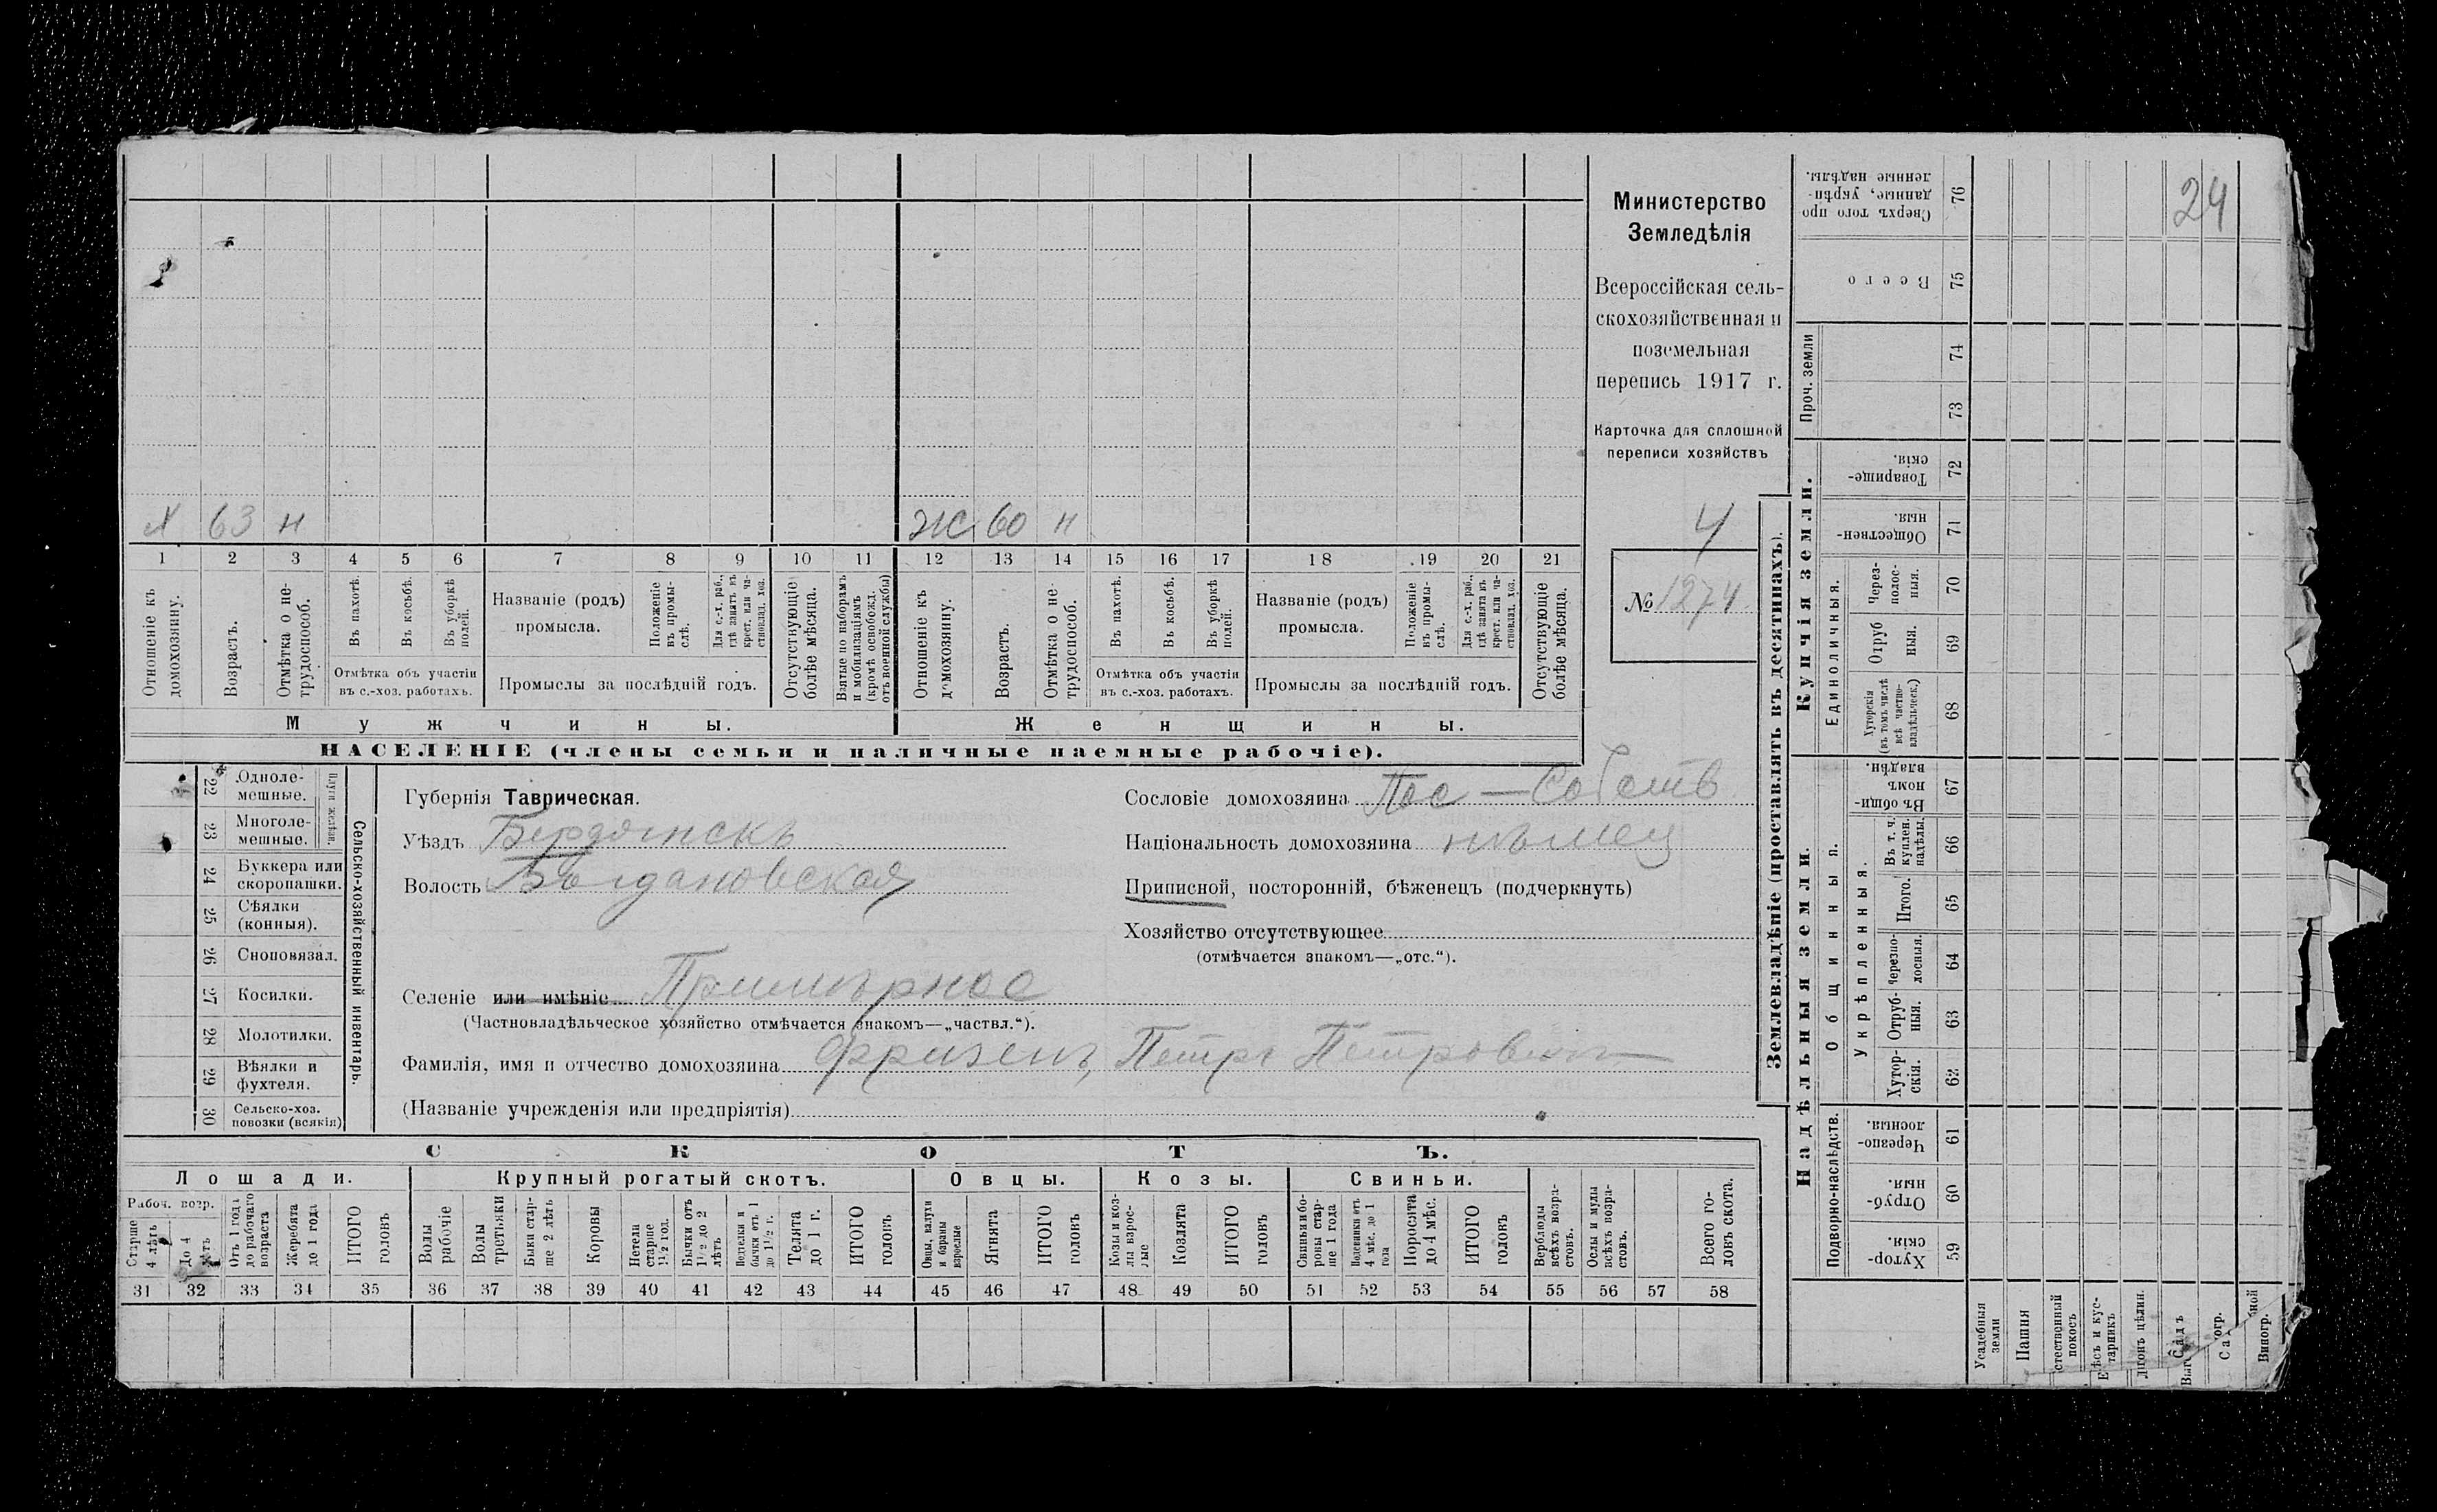 24
Министерство
Земледѣлія
Всероссійская сель-
скохозяйственная и
поземельная
перепись 1917 г.
Карточка для сплошной
переписи хозяйствъ
4
№ 1274
Х 63 н
Ж 60 н
1 2 3 4 5 6 7 8 9 10 11 12 13 14 15 16 17 18 19 20 21
Отношеніе къ домохозяину.
Возрастъ.
Отмѣтка о не-
трудоспособ.
Въ пахотѣ.
Въ косьбѣ.
Въ уборкѣ полей.
Отмѣтка объ участіи
въ с.-хоз. работахъ.
Названіе (родъ)
промысла.
Положеніе въ промы-
слѣ.
Для с.-х. раб.,
гдѣ занятъ въ
крест. или ча-
стновлад. хоз.
Промыслы за послѣдній годъ.
Отсутствующіе
болѣе мѣсяца.
Взятые по наборамъ
и мобилизаціямъ
(кромѣ освобожд.
отъ военной службы)
Отношеніе къ
домохозяину.
Возрастъ.
Отмѣтка о не-
трудоспособ.
Въ пахотѣ.
Въ косьбѣ.
Въ уборкѣ полей.
Отмѣтка объ участіи
въ с.-хоз. работахъ.
Названіе (родъ)
промысла.
Положеніе
въ промы-
слѣ.
Для с.-х. раб.,
гдѣ занята въ
крест. или ча-
стновлад. хоз.
Промыслы за послѣдній годъ.
Отсутствующіе
болѣе мѣсяца.
Мужчины.
Женщины.
НАСЕЛЕНІЕ (члены семьи и наличные наемные рабочіе).
22 Одноле-
мешные.
23 Многоле-
мешные.
Плуги желѣзн.
24 Буккера или
скоропашки.
25 Сѣялки
(конныя).
26 Сноповязал.
27 Косилки.
28 Молотилки.
29 Вѣялки и
фухтеля.
30 Сельско-хоз.
повозки (всякія)
Сельско-хозяйственный инвентарь.
Губернія Таврическая.
Уѣздъ Бердянскъ
Волость Богдановская
Селеніе или имѣніе Примѣрное
(Частновладѣльческое хозяйство отмѣчается знакомъ—„частвл.“).
Фамилія, имя и отчество домохозяина Фризенъ, Петръ Петровичъ
(Названіе учрежденія или предпріятія)
Сословіе домохозяина Пос — Собств
Національность домохозяина нѣмец
Приписной, посторонній, бѣженецъ (подчеркнуть)
Хозяйство отсутствующее
(отмѣчается знакомъ—„отс.“).
СКОТЪ.
Лошади.
Крупный рогатый скотъ.
Овцы.
Козы.
Свиньи.
Рабоч. возр.
Старше
4 лѣтъ
До 4
лѣтъ
Отъ 1 года
до рабочаго
возраста
Жеребята
до 1 года
ИТОГО
головъ
Волы
рабочіе
Волы
третьяки
Быки стар-
ше 2 лѣтъ
Коровы
Нетела
старше
1½ год.
Бычки отъ
1½ до 2
лѣтъ
бычки отъ 1
до 1½ г.
Телята
до 1 г.
ИТОГО
головъ
Овцы, валухи
и бараны
взрослые
Ягнята
ИТОГО
головъ
Козы и коз-
лы взрос-
лые
Козлята
ИТОГО
головъ
Свиньи и бо-
ровы стар-
ше 1 года
Подсвинки отъ
4 мѣс. до 1
года
Поросята
до 4 мѣс.
ИТОГО
головъ
Верблюды
всѣхъ возра-
стовъ.
Ослы и мулы
всѣхъ возра-
стовъ.
Всего го-
ловъ скота.
31 32 33 34 35 36 37 38 39 40 41 42 43 44 45 46 47 48 49 50 51 52 53 54 55 56 57 58
Землевладѣніе (проставлять въ десятинахъ).
Купчія земли.
Надѣльныя земли.
Сверхъ того про
данные, укрѣп-
ленные надѣлы.
76
Всего
75
Проч. земли
74
73
Товарище-
скія.
72
Обществен-
ныя.
71
Единоличныя.
Через-
полос-
ныя.
70
Отруб
ныя.
69
Хуторскія
(въ томъ числѣ
всѣ частно-
владѣльческ.)
68
Общинныя.
Въ общи-
номъ
владѣн.
67
Укрѣпленныя.
Въ т. ч.
куплен.
надѣлы.
66
Итого.
65
Черезпо-
лосныя.
64
Отруб-
ныя.
63
Хутор-
скія.
62
Подворно-наслѣдств.
Черезпо-
лосныя.
61
Отруб-
ныя.
60
Хутор-
скія.
59
Усадебныя
земли
Пашня
стественный
покосъ
ѣсъ и кус-
тарникъ
Садъ
Виногр.